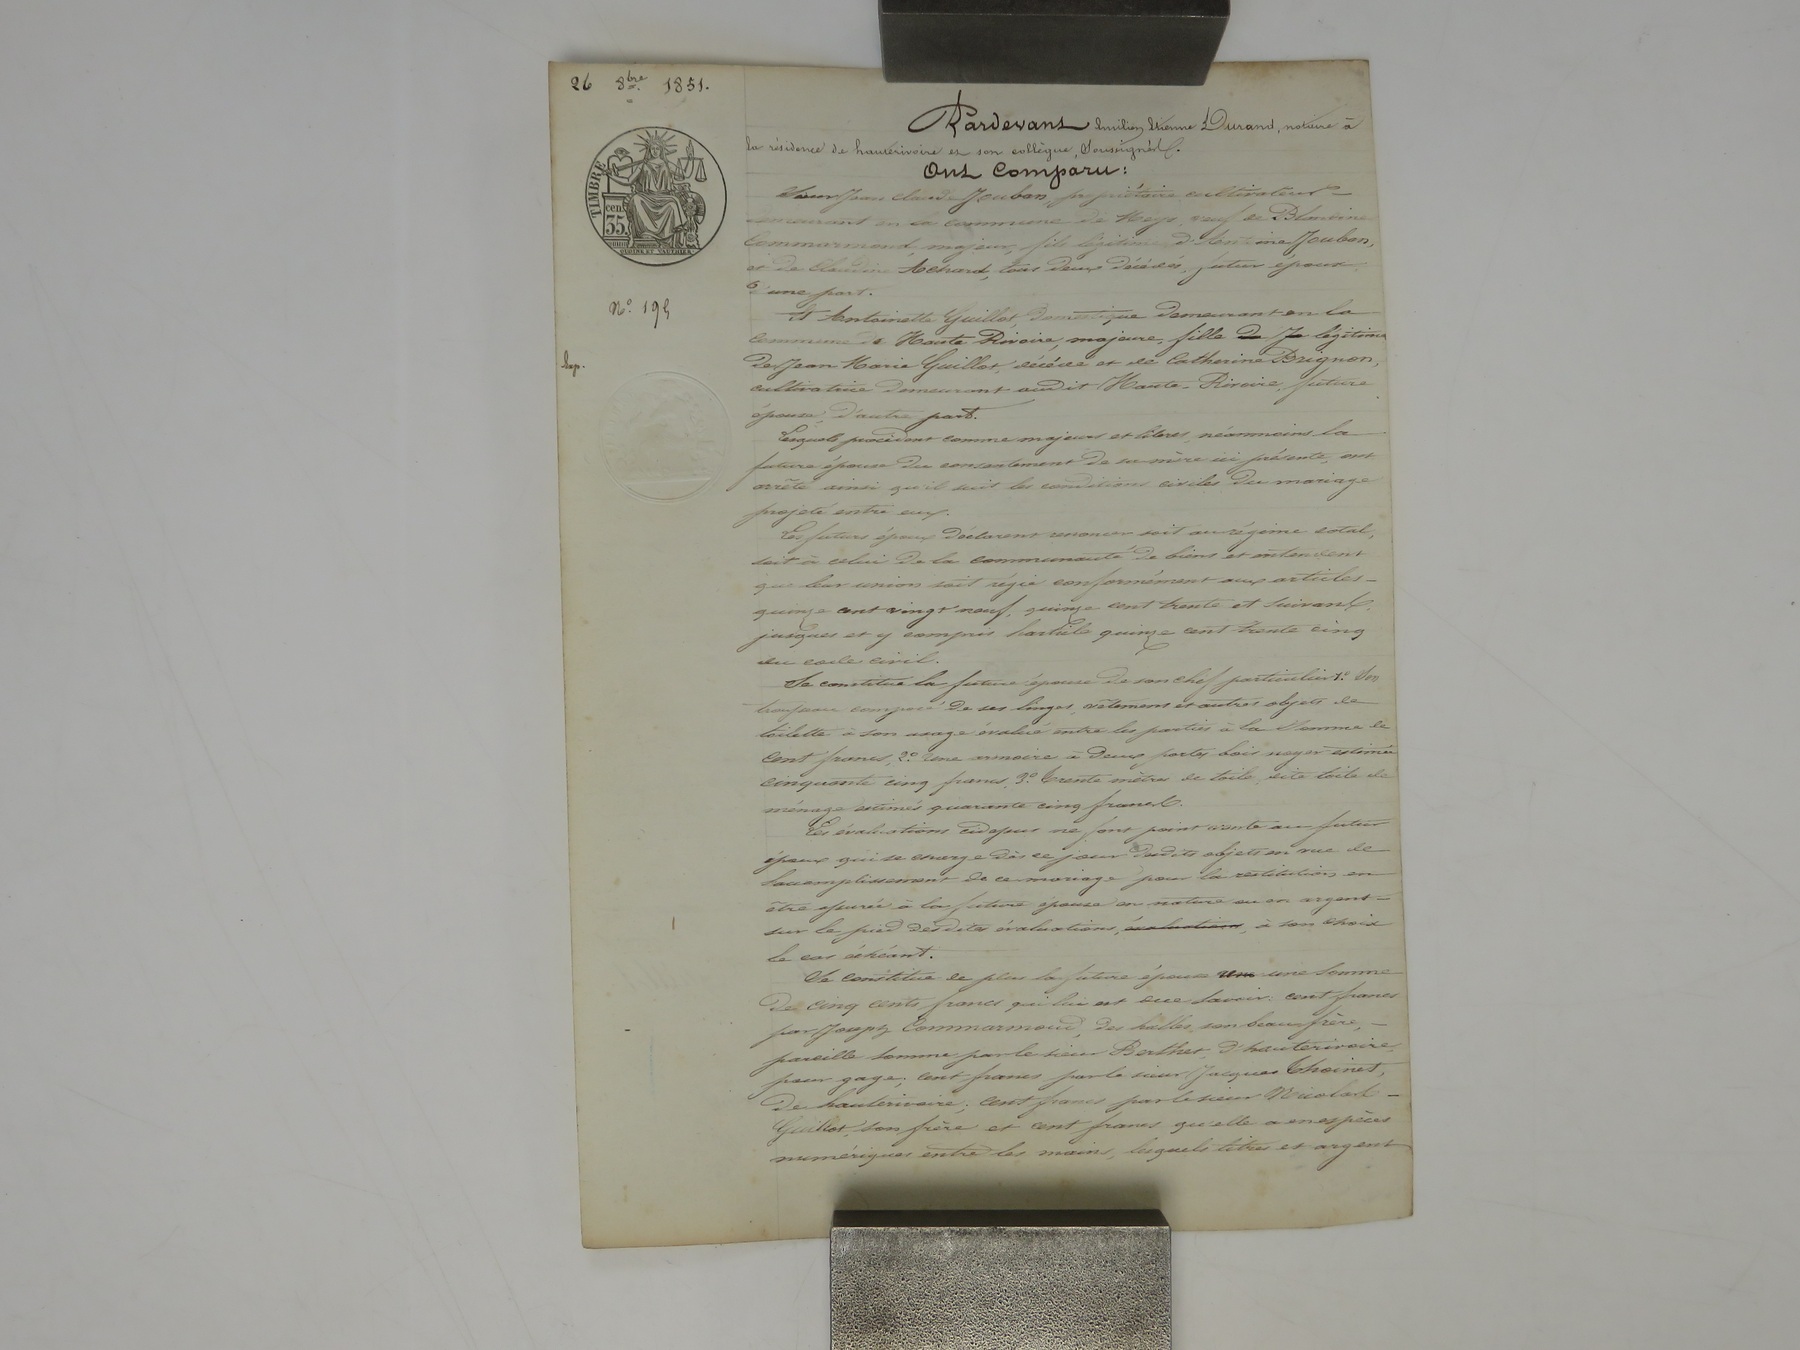 26 8bre 1851.
TIMBRE
cen.
35.
N° 195
Exp.
Pardevant Emilien Etienne Durand, notaire à
la résidence de hauterivoire et son collègue, Soussignés.
Ont Comparu:
Sieur Jean Claude Jouban, propriétaire cultivateur
demeurant en la commune de Meys, veuf de Blandine
Commarmond, majeur, fils légitime d'Antoine Jouban,
et de Claudine Achard, tous deux décédés, futur époux
d'une part.
Et Antoinette Guillot, domestique demeurant en la
Commune de Haute Rivoire, majeure, fille de Je légitime
de Jean Marie Guillot, décédé et de Catherine Brignon,
cultivatrice demeurant audit Haute-Rivoire, future
épouse; d'autre part.
Lesquels procédant comme majeurs et libres, néanmoins la
future épouse du consentement de sa mère ici présente, ont
arrêté ainsi qu'il suit les conditions civiles du mariage
projeté entre eux.
Les futurs époux déclarent renoncer soit au régime dotal,
soit à celui de la communauté de biens et entendent
que leur union soit régie conformément aux articles
quinze cent vingt neuf, quinze cent trente et suivants,
jusques et y compris l'article quinze cent trente cinq
du code civil.
Se constitue la future épouse de son chef particulier 1° Son
trousseau composé de ses linges, vêtemens et autres objets de
toilette à son usage évalué entre les parties à la Somme de
cent francs, 2° Une armoire à deux portes bois noyer estimée
cinquante cinq francs, 3° trente mètres de toile, dite toile de
ménage estimés quarante cinq francs.
Les évaluations cidessus ne font point vente au futur
époux qui se charge dès ce jour desdits objets en vue de
l'accomplissement de ce mariage pour la restitution en
être assurée à la future épouse en nature ou en argent
sur le pied desdites évaluations, évaluations, à son choix
le cas échéant.
Se constitue de plus la future épouse une somme
de cinq cents francs qui lui est due Savoir: cent francs
par Joseph Commarmond, des halles, son beau frère,
pareille somme par le sieur Berthet, d'hauterivoire,
pour gage; cent francs par le sieur Jacques Choinet,
de hauterivoire; cent francs par le sieur Nicolas
Guillot, son frère et cent francs qu'elle a en espèces
numériques entre les mains, lesquels titres et argent